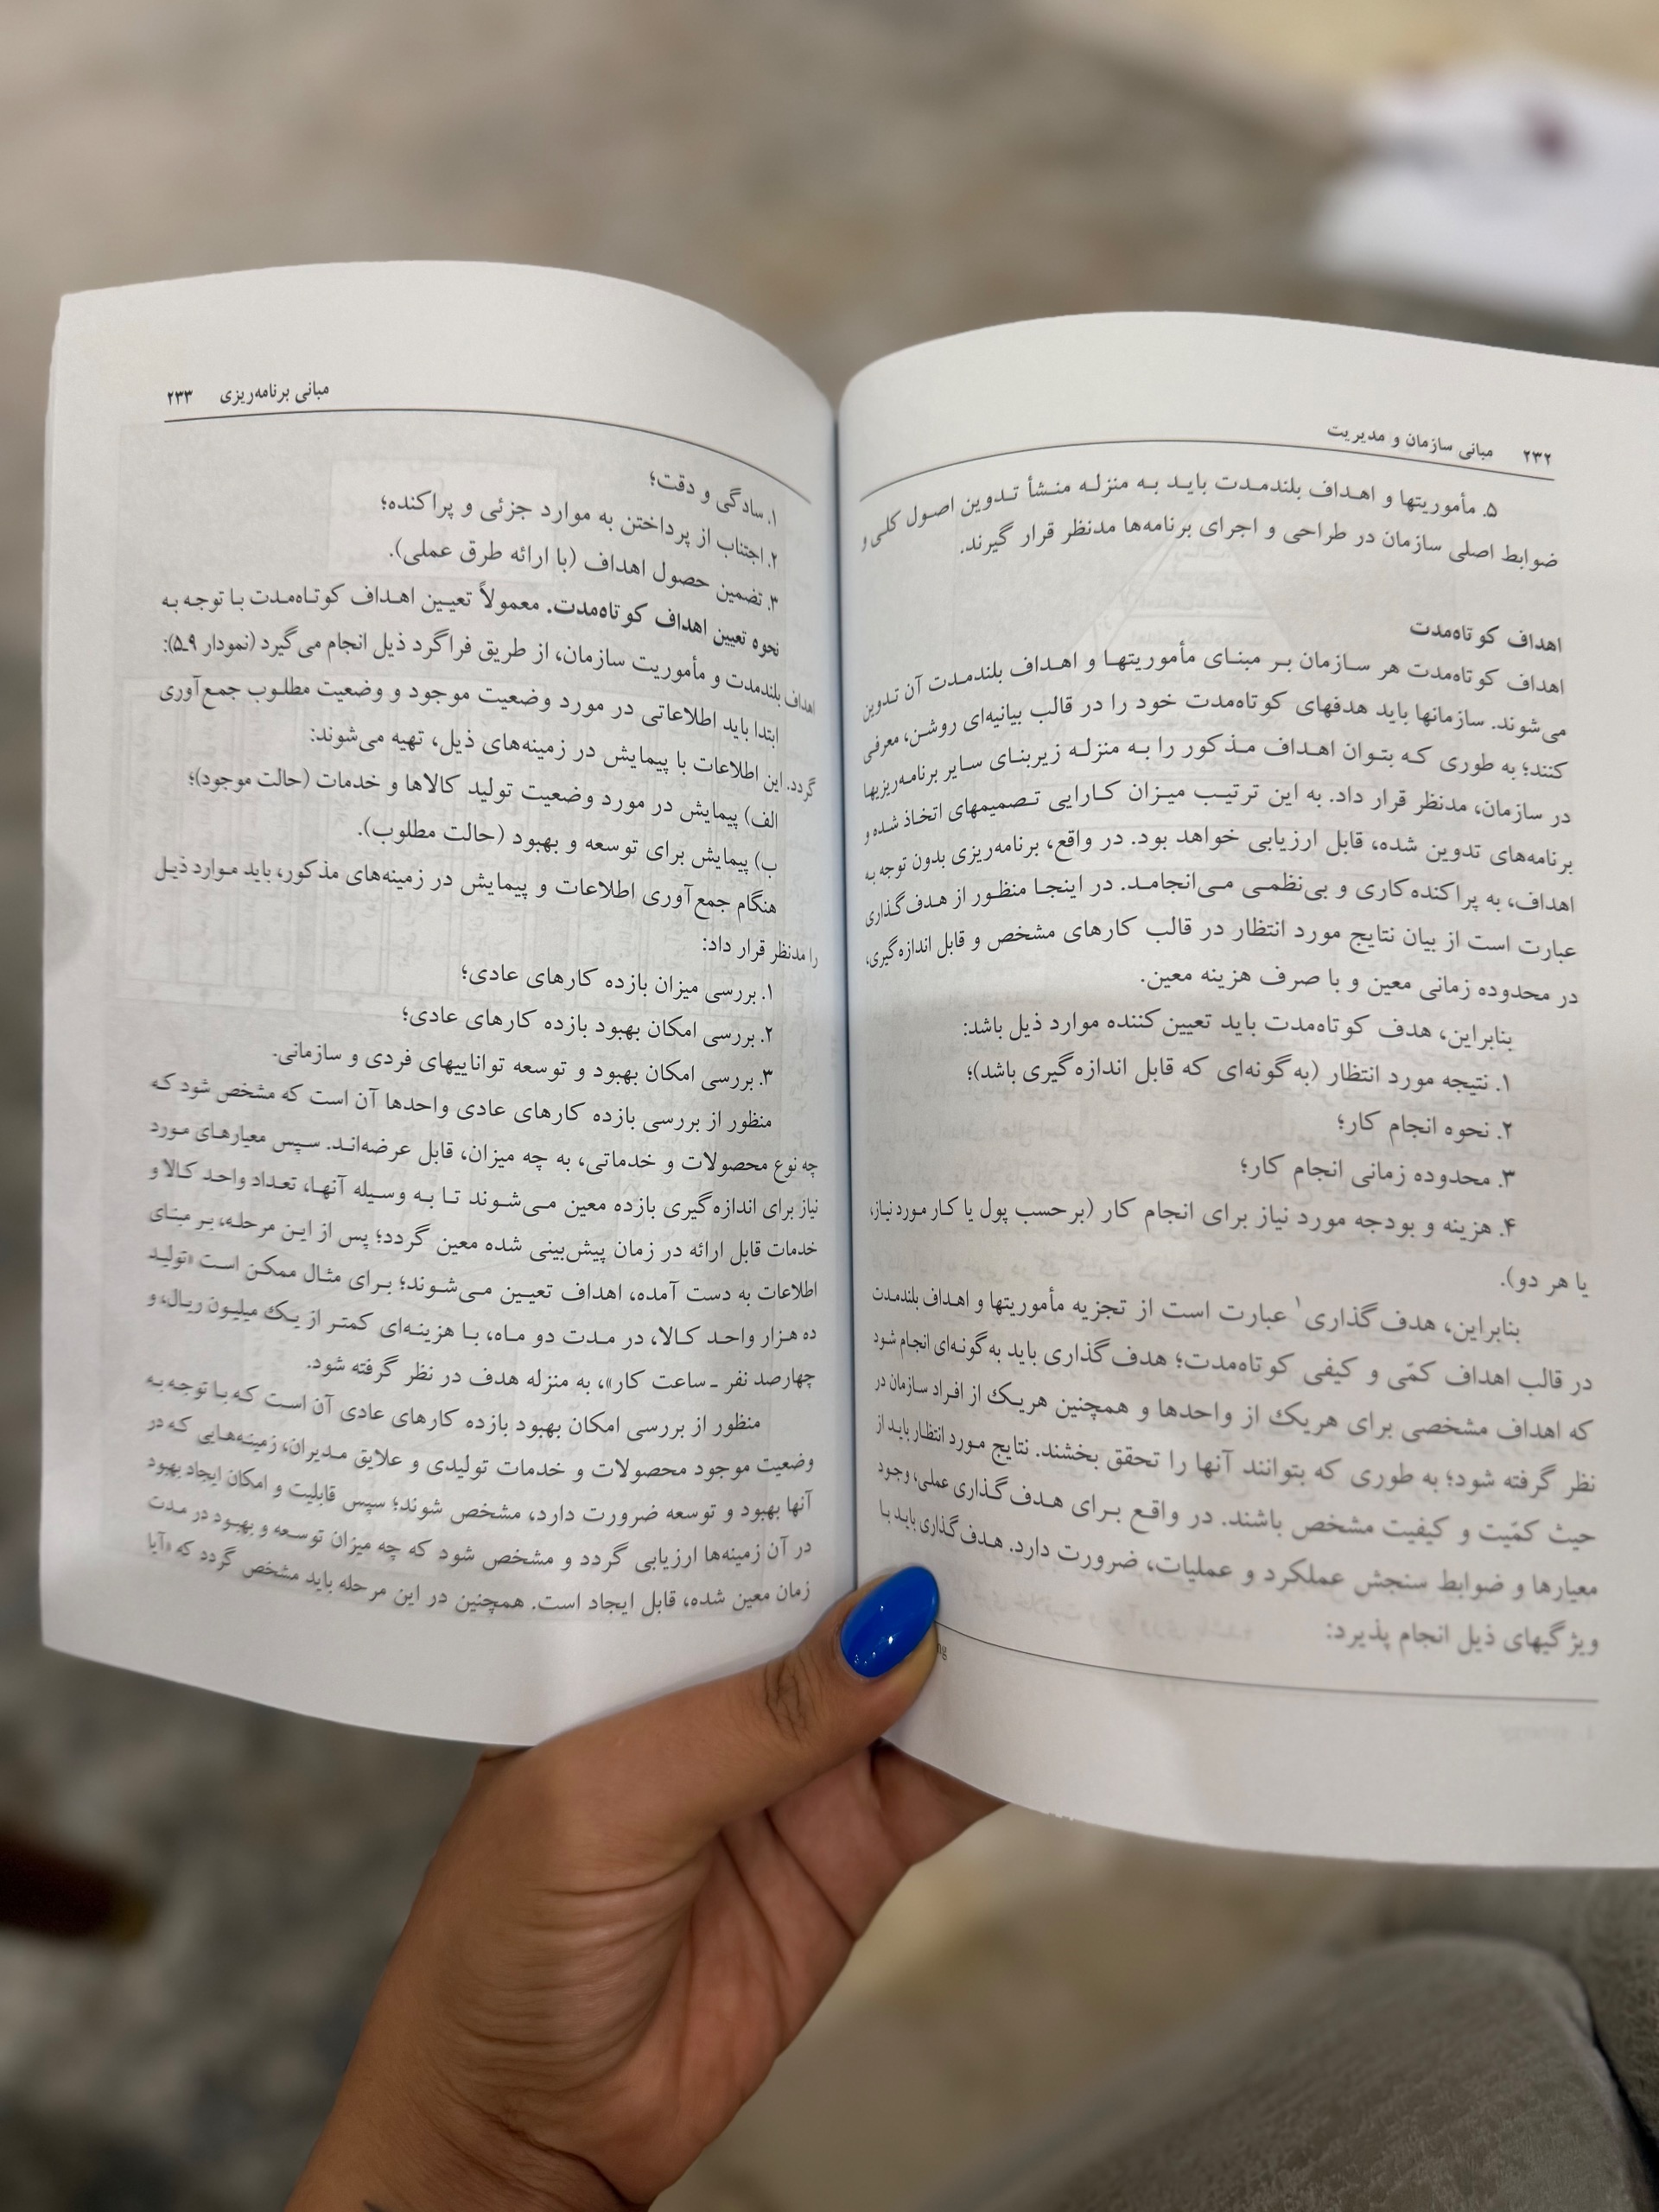 ۲۳۲ مبانی سازمان و مدیریت
۵. مأموریتها و اهداف بلندمدت باید به منزله منشأ تدوین اصول کلی و
ضوابط اصلی سازمان در طراحی و اجرای برنامه‌ها مدنظر قرار گیرند.
اهداف کوتاه‌مدت
اهداف کوتاه‌مدت هر سازمان بر مبنای مأموریتها و اهداف بلندمدت آن تدوین
می‌شوند. سازمانها باید هدفهای کوتاه‌مدت خود را در قالب بیانیه‌ای روشن، معرفی
کنند؛ به طوری که بتوان اهداف مذکور را به منزله زیربنای سایر برنامه‌ریزیها
در سازمان، مدنظر قرار داد. به این ترتیب میزان کارایی تصمیمهای اتخاذ شده و
برنامه‌های تدوین شده، قابل ارزیابی خواهد بود. در واقع، برنامه‌ریزی بدون توجه به
اهداف، به پراکنده‌کاری و بی‌نظمی می‌انجامد. در اینجا منظور از هدف‌گذاری
عبارت است از بیان نتایج مورد انتظار در قالب کارهای مشخص و قابل اندازه‌گیری،
در محدوده زمانی معین و با صرف هزینه معین.
بنابراین، هدف کوتاه‌مدت باید تعیین‌کننده موارد ذیل باشد:
۱. نتیجه مورد انتظار (به گونه‌ای که قابل اندازه‌گیری باشد)؛
۲. نحوه انجام کار؛
۳. محدوده زمانی انجام کار؛
۴. هزینه و بودجه مورد نیاز برای انجام کار (برحسب پول یا کار مورد نیاز،
یا هر دو).
بنابراین، هدف‌گذاری۱ عبارت است از تجزیه مأموریتها و اهداف بلندمدت
در قالب اهداف کمّی و کیفی کوتاه‌مدت؛ هدف‌گذاری باید به گونه‌ای انجام شود
که اهداف مشخصی برای هریک از واحدها و همچنین هریک از افراد سازمان در
نظر گرفته شود؛ به طوری که بتوانند آنها را تحقق بخشند. نتایج مورد انتظار باید از
حیث کمّیت و کیفیت مشخص باشند. در واقع برای هدف‌گذاری عملی، وجود
معیارها و ضوابط سنجش عملکرد و عملیات، ضرورت دارد. هدف‌گذاری باید با
ویژگیهای ذیل انجام پذیرد:
ng
مبانی برنامه‌ریزی ۲۳۳
۱. سادگی و دقت؛
۲. اجتناب از پرداختن به موارد جزئی و پراکنده؛
۳. تضمین حصول اهداف (با ارائه طرق عملی).
نحوه تعیین اهداف کوتاه‌مدت. معمولاً تعیین اهداف کوتاه‌مدت با توجه به
اهداف بلندمدت و مأموریت سازمان، از طریق فراگرد ذیل انجام می‌گیرد (نمودار ۹ـ۵):
ابتدا باید اطلاعاتی در مورد وضعیت موجود و وضعیت مطلوب جمع‌آوری
گردد. این اطلاعات با پیمایش در زمینه‌های ذیل، تهیه می‌شوند:
الف) پیمایش در مورد وضعیت تولید کالاها و خدمات (حالت موجود)؛
ب) پیمایش برای توسعه و بهبود (حالت مطلوب).
هنگام جمع‌آوری اطلاعات و پیمایش در زمینه‌های مذکور، باید موارد ذیل
را مدنظر قرار داد:
۱. بررسی میزان بازده کارهای عادی؛
۲. بررسی امکان بهبود بازده کارهای عادی؛
۳. بررسی امکان بهبود و توسعه تواناییهای فردی و سازمانی.
منظور از بررسی بازده کارهای عادی واحدها آن است که مشخص شود که
چه نوع محصولات و خدماتی، به چه میزان، قابل عرضه‌اند. سپس معیارهای مورد
نیاز برای اندازه‌گیری بازده معین می‌شوند تا به وسیله آنها، تعداد واحد کالا و
خدمات قابل ارائه در زمان پیش‌بینی شده معین گردد؛ پس از این مرحله، بر مبنای
اطلاعات به دست آمده، اهداف تعیین می‌شوند؛ برای مثال ممکن است «تولید
ده هزار واحد کالا، در مدت دو ماه، با هزینه‌ای کمتر از یک میلیون ریال، و
چهارصد نفر ـ ساعت کار»، به منزله هدف در نظر گرفته شود.
منظور از بررسی امکان بهبود بازده کارهای عادی آن است که با توجه به
وضعیت موجود محصولات و خدمات تولیدی و علایق مدیران، زمینه‌هایی که در
آنها بهبود و توسعه ضرورت دارد، مشخص شوند؛ سپس قابلیت و امکان ایجاد بهبود
در آن زمینه‌ها ارزیابی گردد و مشخص شود که چه میزان توسعه و بهبود در مدت
زمان معین شده، قابل ایجاد است. همچنین در این مرحله باید مشخص گردد که «آیا